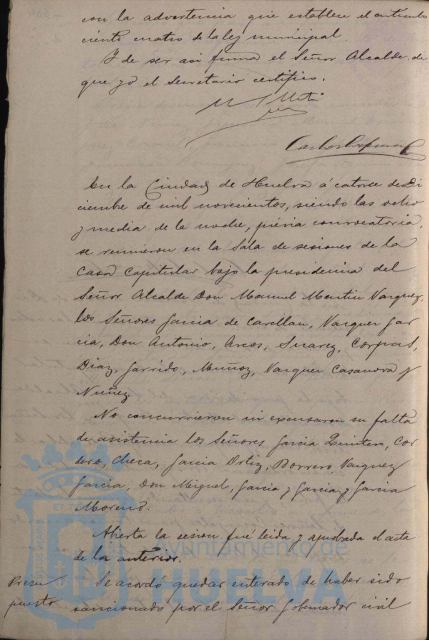 con la advertencia que establece el artículo
ciento cuatro de la ley municipal.
Y de ser así firma el Señor Alcalde, de
que yo el Secretario certifico.
En la Ciudad de Huelva á catorce de Di
ciembre de mil novecientos, siendo las ocho
y media de la noche, previa convocatoria,
se reunieron en la Sala de sesiones de la
Casa Capitular bajo la presidencia del
Señor Alcalde Don Manuel Martin Vazquez,
los Señores Garcia de Cavellan, Vazquez Gar
cia, Don Antonio, Arcos, Suarez, Corpas,
Diaz, Garrido, Muñoz, Vazquez Casanova y
Nuñez
No concurrieron ni excusaron su falta
de asistencia los Señores Garcia Quintero, Cor
dero, Checa, Garcia Ortiz, Borrero, Vazquez
Garcia, Don Miguel, Garcia y Garcia y Garcia
Moreno.
Abierta la sesion fué leida y aprobada el acta
de la anterior.
Presu
puesto
Se acordó quedar enterado de haber sido
sancionado por el Señor Gobernador civil
Ayuntamiento de
HUELVA